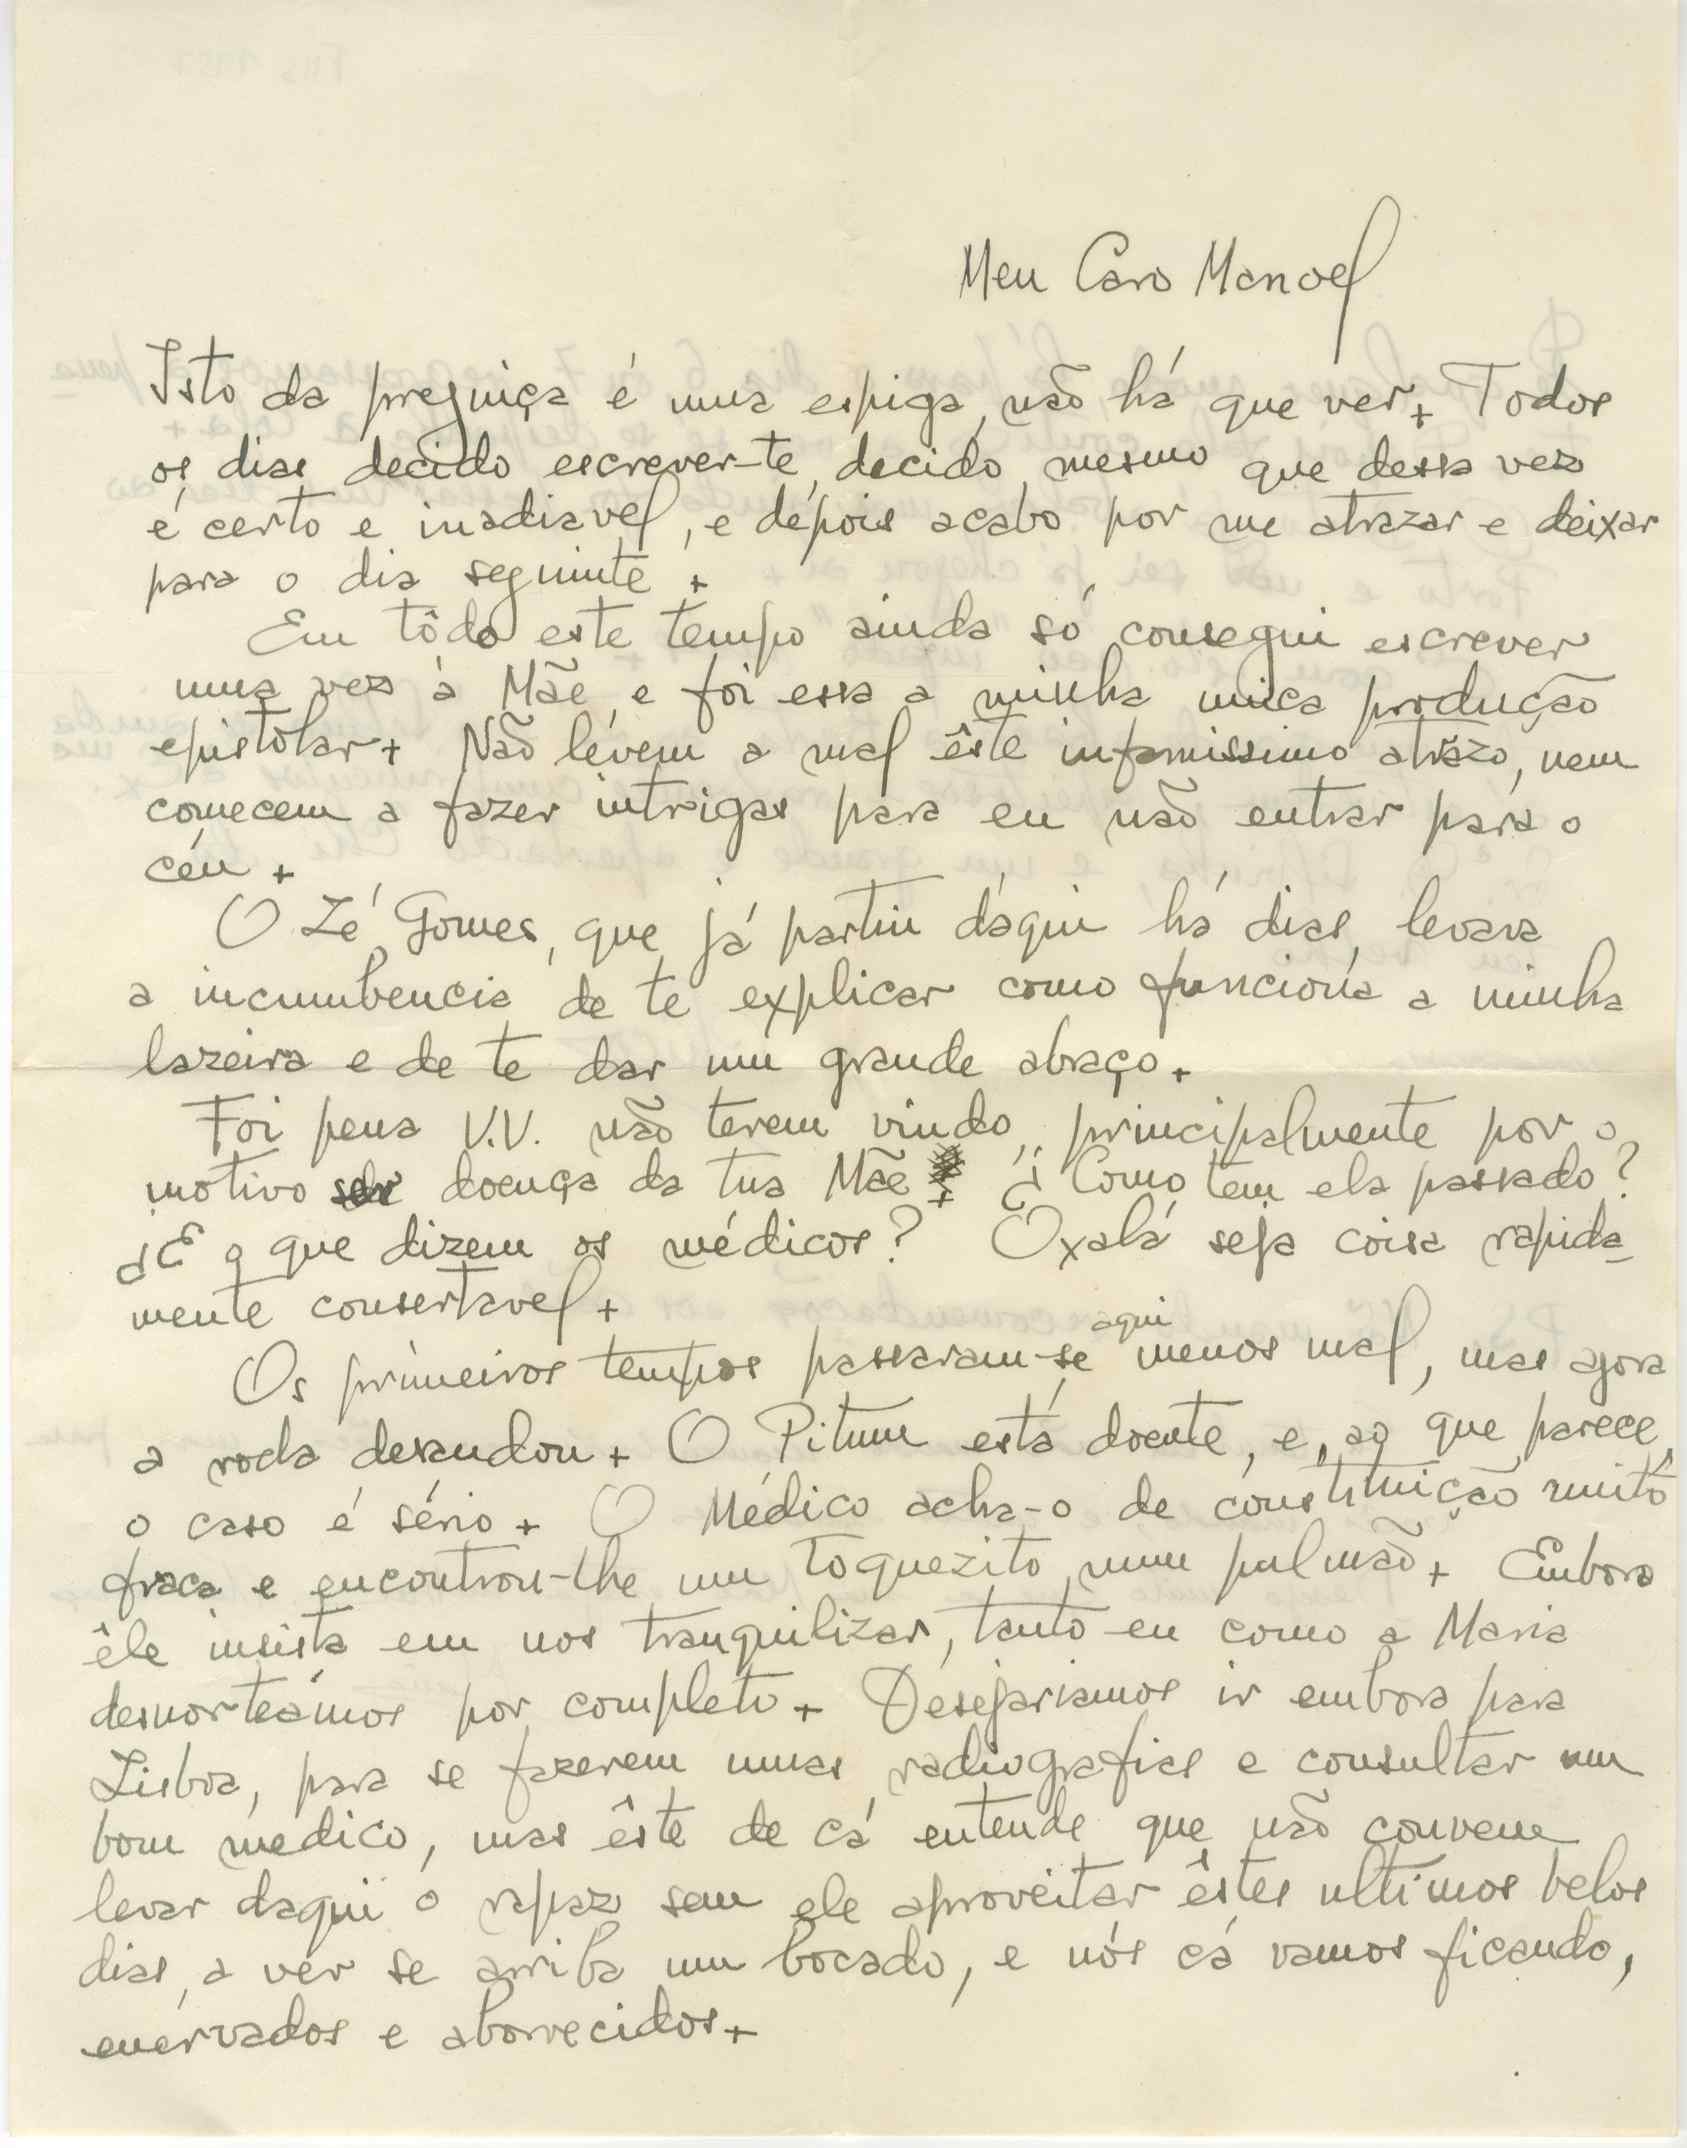 Meu Caro Manoel
Isto da preguiça é uma espiga, não há que ver+ Todos
os dias decido escrever-te, decido mesmo que dessa vez
é certo e inadiavel, e depois acabo por me atrazar e deixar
para o dia seguinte +
Em tôdo este tempo ainda só consegui escrever
uma vez á Mãe e foi essa a minha unica produção
epistolar+ Não levem a mal êste infamissimo atrazo, nem
comecem a fazer intrigas para eu não entrar para o
céu +
O Zé Gomes, que já partiu daqui há dias, levava
a incumbencia de te explicar como funciona a minha
lazeira e de te dar um grande abraço+
Foi pena V.V. não terem vindo, principalmente por o
motivo ser doença da tua Mãe+ ¿ Como tem ela passado?
¿E o que dizem os médicos? Oxalá seja coisa rapida-
mente consertavel+
Os primeiros tempos passaram-se aqui menos mal, mas agora
a roda desandou+ O Pitum está doente, e, ao que parece,
o caso é sério+ O Médico acha-o de constituição muito
fraca e encontrou-lhe um toquezito num pulmão+ Embora
êle insista em nos tranquilizar, tanto eu como a Maria
desnorteámos por completo+ Desejariamos ir embora para
Lisboa, para se fazerem umas radiografias e consultar um
bom medico, mas êste de cá entende que não convem
levar daqui o rapaz sem ele aproveitar êstes ultimos belos
dias, a ver se arriba um bocado, e nós cá vamos ficando,
enervados e aborrecidos+